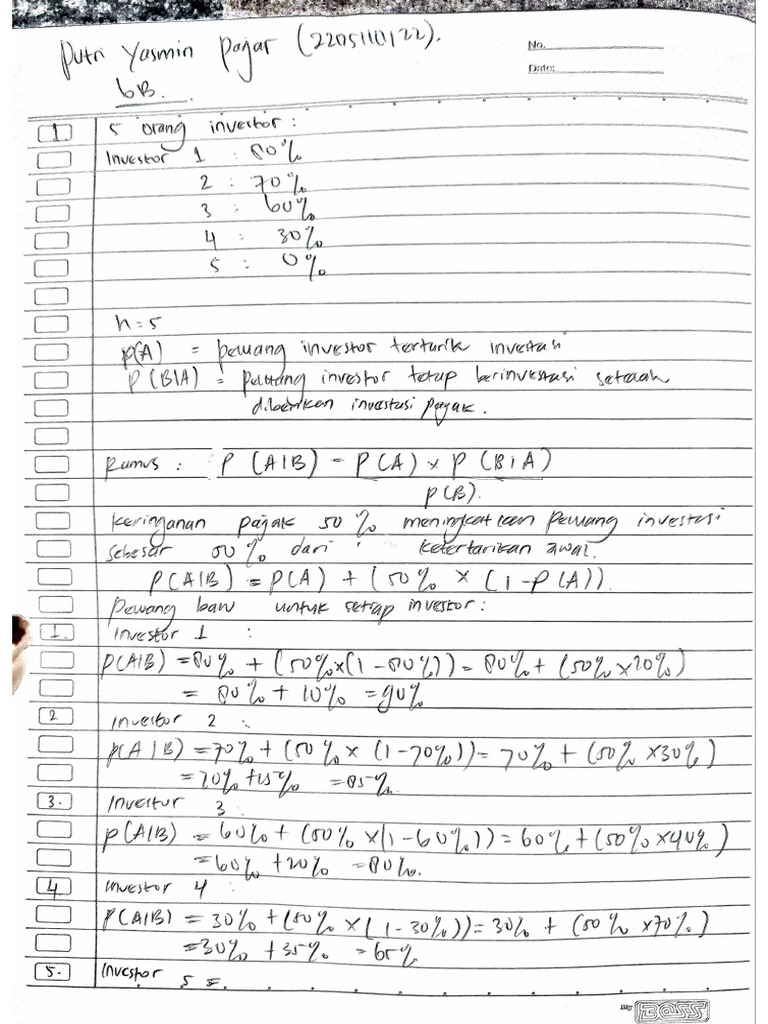 Putri Yasmin Pajar (2205110122).
6B.
No.
Date:
1 5 orang investor :
Investor 1 : 80%
2 : 70%
3 : 60%
4 : 30%
5 : 0%
n = 5
P(A) = peluang investor tertarik investasi
P(B|A) = peluang investor tetap berinvestasi setelah
diberikan investasi pajak.
Rumus : P (A|B) = P(A) x P(B|A)
P(B).
Keringanan pajak 50% meningkatkan peluang investasi
sebesar 50% dari : ketertarikan awal.
P(A|B) = P(A) + (50% x (1-P(A)).
Peluang baru untuk setiap investor :
1. Investor 1 :
P(A|B) = 80% + (50% x (1-80%)) = 80% + (50% x 20%)
= 80% + 10% = 90%
2 Investor 2 :
P(A|B) = 70% + (50% x (1-70%)) = 70% + (50% x 30%)
= 70% + 15% = 85%.
3. Investor 3 :
P(A|B) = 60% + (50% x (1-60%)) = 60% + (50% x 40%)
= 60% + 20% = 80%.
4 Investor 4 :
P(A|B) = 30% + (50% x (1-30%)) = 30% + (50% x 70%)
= 30% + 35% = 65%
5. Investor 5 =
BOSS